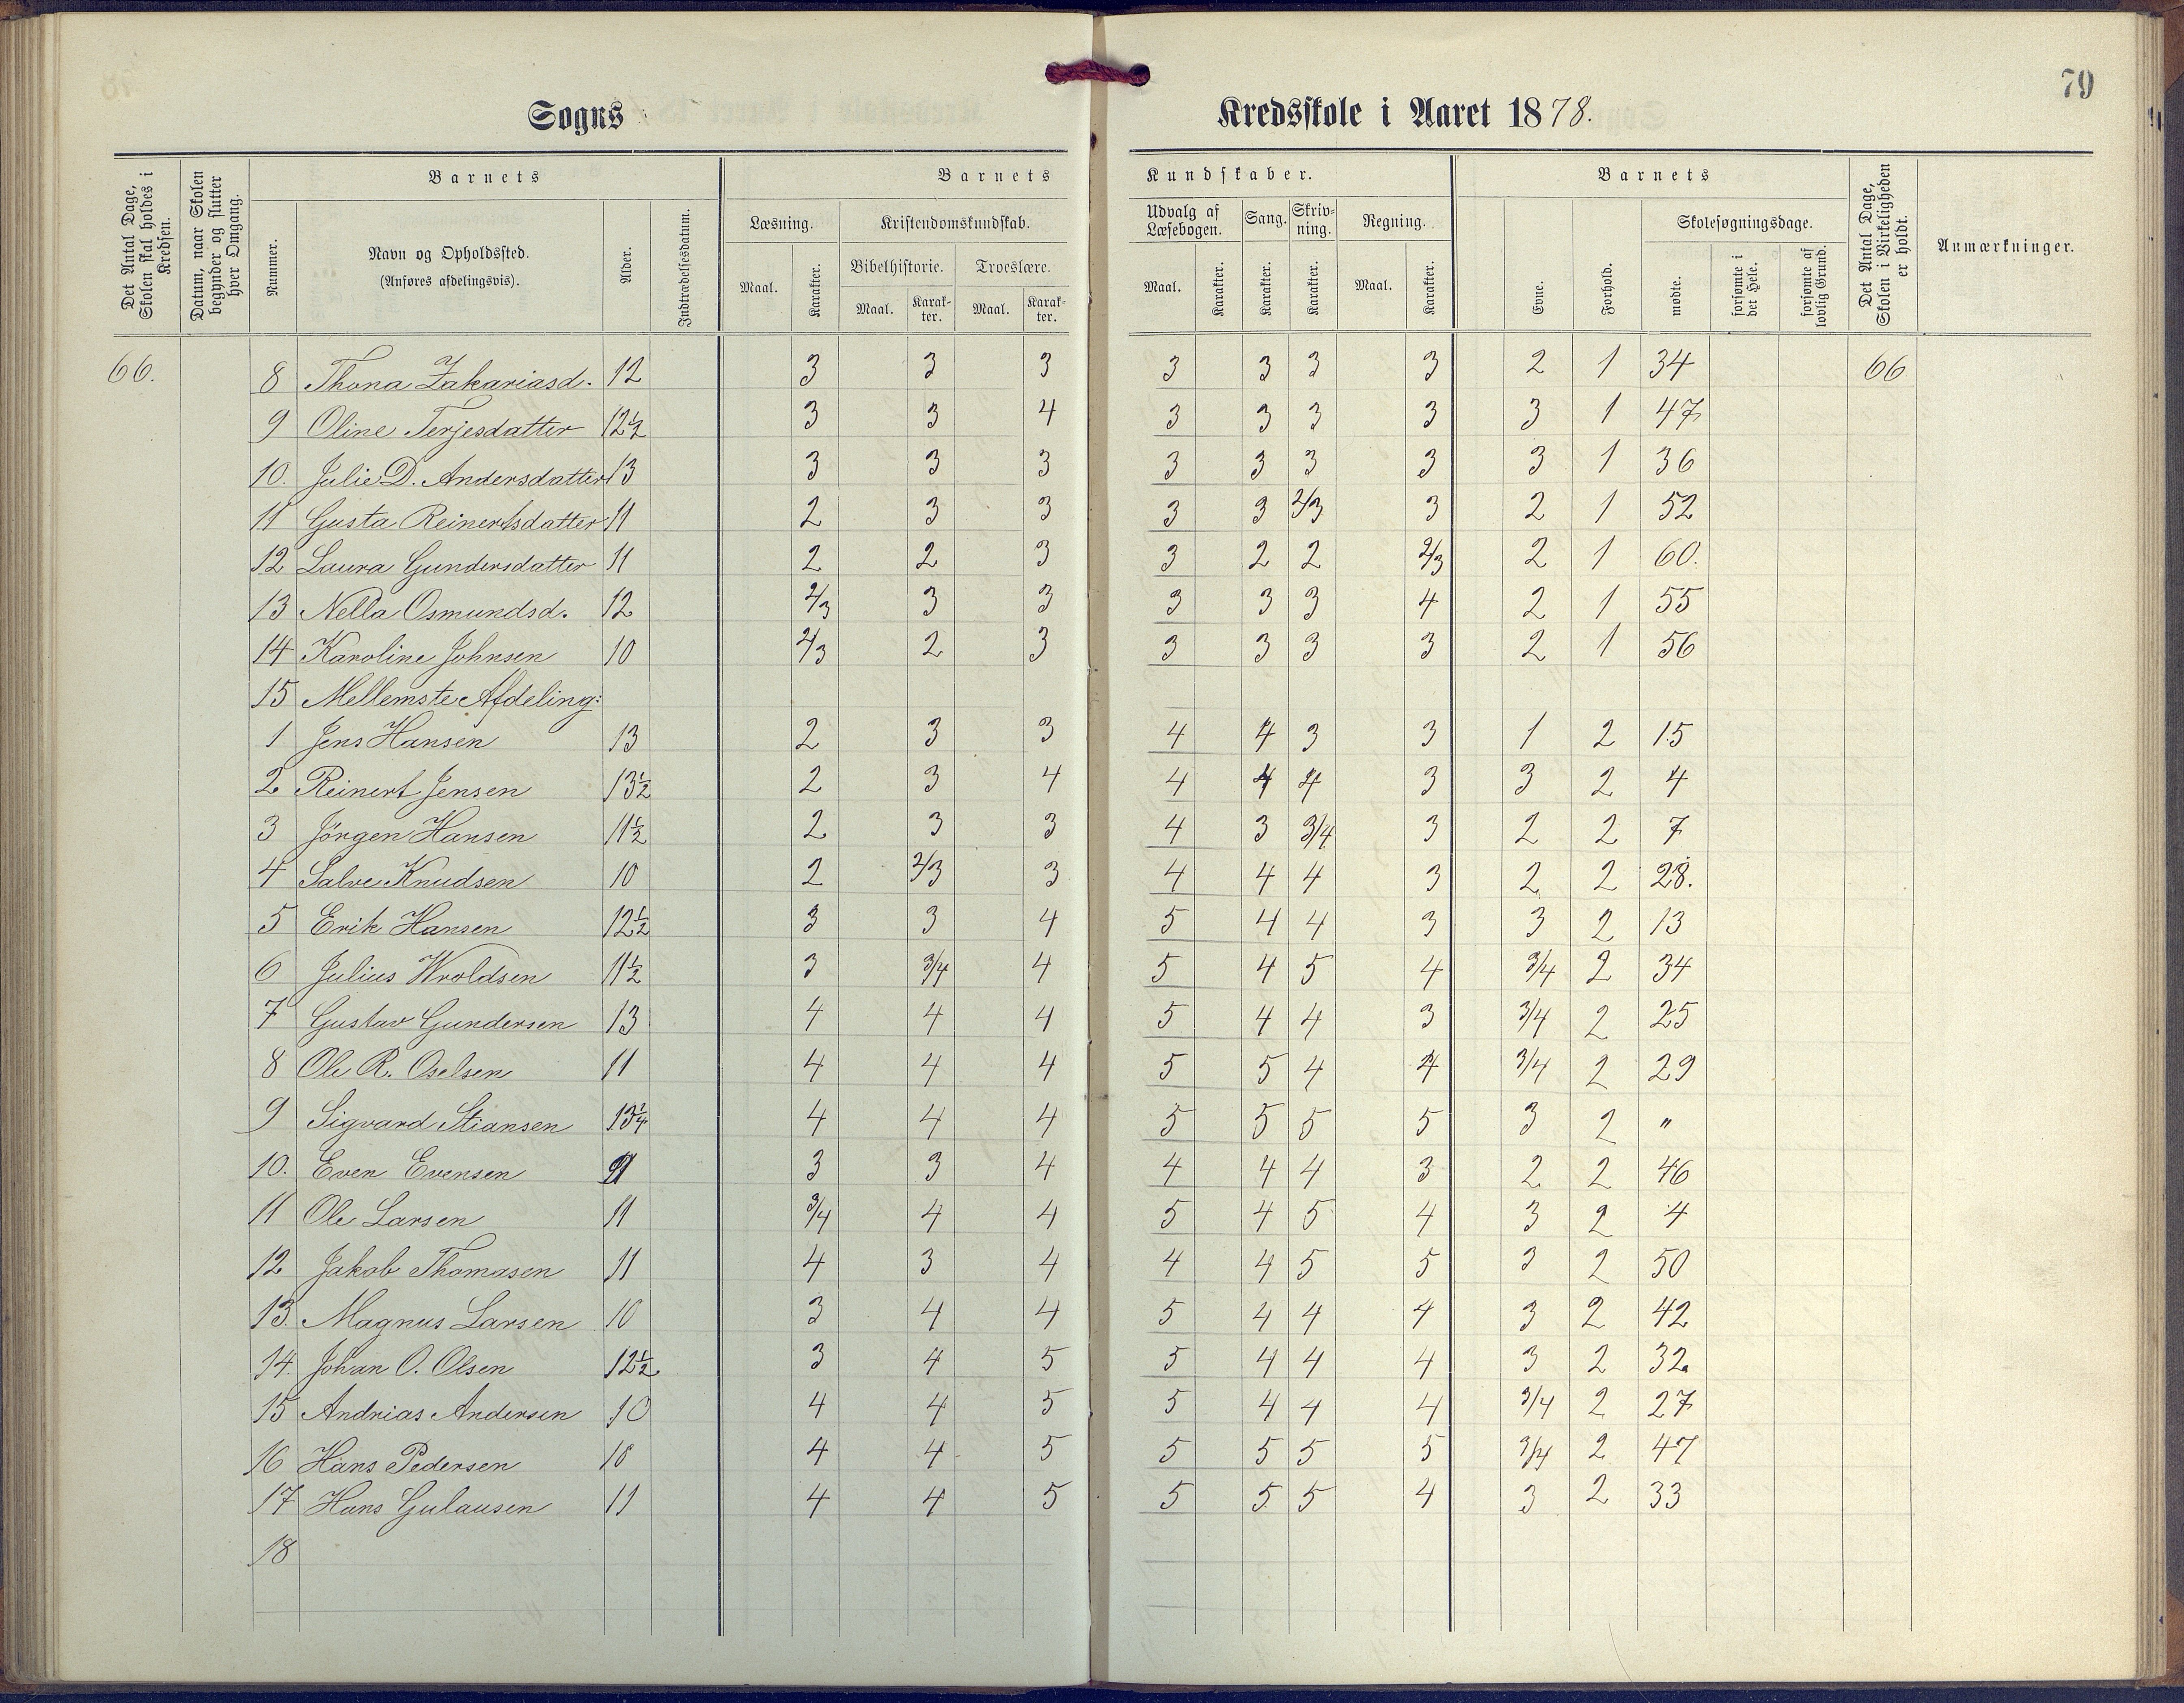 79
Sogns Kredsskole i Aaret 1878.
Det Antal Dage, Skolen skal holdes i Kredsen.
Datum, naar Skolen begynder og slutter hver Omgang.
Barnets
Nummer.
Navn og Opholdssted.
(Anføres afdelingsvis).
Alder.
Indtrædelsesdatum.
Barnets Kundskaber.
Læsning. Kristendomskundskab. Udvalg af Læsebogen. Sang. Skrivning. Regning.
Bibelhistorie. Troeslære.
Maal. Karakter. Maal. Karakter. Maal. Karakter. Maal. Karakter. Karakter. Karakter. Maal. Karakter.
Barnets
Evne. Forhold. Skolesøgningsdage.
mødte. forsømte i det Hele. forsømte af lovlig Grund.
Det Antal Dage, Skolen i Virkeligheden er holdt.
Anmærkninger.
66. 8 Thona Zakariasd. 12 3 3 3 3 3 3 3 2 1 34 66
9 Oline Terjesdatter 12½ 3 3 4 3 3 3 3 3 1 47
10. Julie D. Andersdatter 13 3 3 3 3 3 3 3 3 1 36
11 Gusta Reinertsdatter 11 2 3 3 3 3 2/3 3 2 1 52
12 Laura Gundersdatter 11 2 2 3 3 2 2 2/3 2 1 60.
13 Nella Osmundsd. 12 2/3 3 3 3 3 3 4 2 1 55
14 Karoline Johnsen 10 2/3 2 3 3 3 3 3 2 1 56
15 Mellemste Afdeling:
1 Jens Hansen 13 2 3 3 4 4 3 3 1 2 15
2 Reinert Jensen 13½ 2 3 4 4 4 4 3 3 2 4
3 Jörgen Hansen 11½ 2 3 3 4 3 3/4 3 2 2 7
4 Salve Knudsen 10 2 2/3 3 4 4 4 3 2 2 28.
5 Erik Hansen 12½ 3 3 4 5 4 4 3 3 2 13
6 Julius Wroldsen 11½ 3 3/4 4 5 4 5 4 3/4 2 34
7 Gustav Gundersen 13 4 4 4 5 4 4 3 3/4 2 25
8 Ole R. Oselsen 11 4 4 4 5 5 4 4 3/4 2 29
9 Sigvard Stiansen 4 4 4 5 5 5 5 3 2 "
10. Even Evensen 3 3 4 4 4 4 3 2 2 46
11 Ole Larsen 11 3/4 4 4 5 4 5 4 3 2 4
12 Jakob Thomasen 11 4 3 4 4 4 5 5 3 2 50
13. Magnus Larsen 10 3 4 4 5 4 4 4 3 2 42
14. Johan O. Olsen 12½ 3 4 5 5 4 4 4 3 2 32.
15 Andrias Andersen 10 4 4 5 5 4 4 4 3/4 2 27
16 Hans Pedersen 10 4 4 5 5 5 5 5 3/4 2 47
17 Hans Gulausen 11 4 4 5 5 5 5 4 3 2 33
18